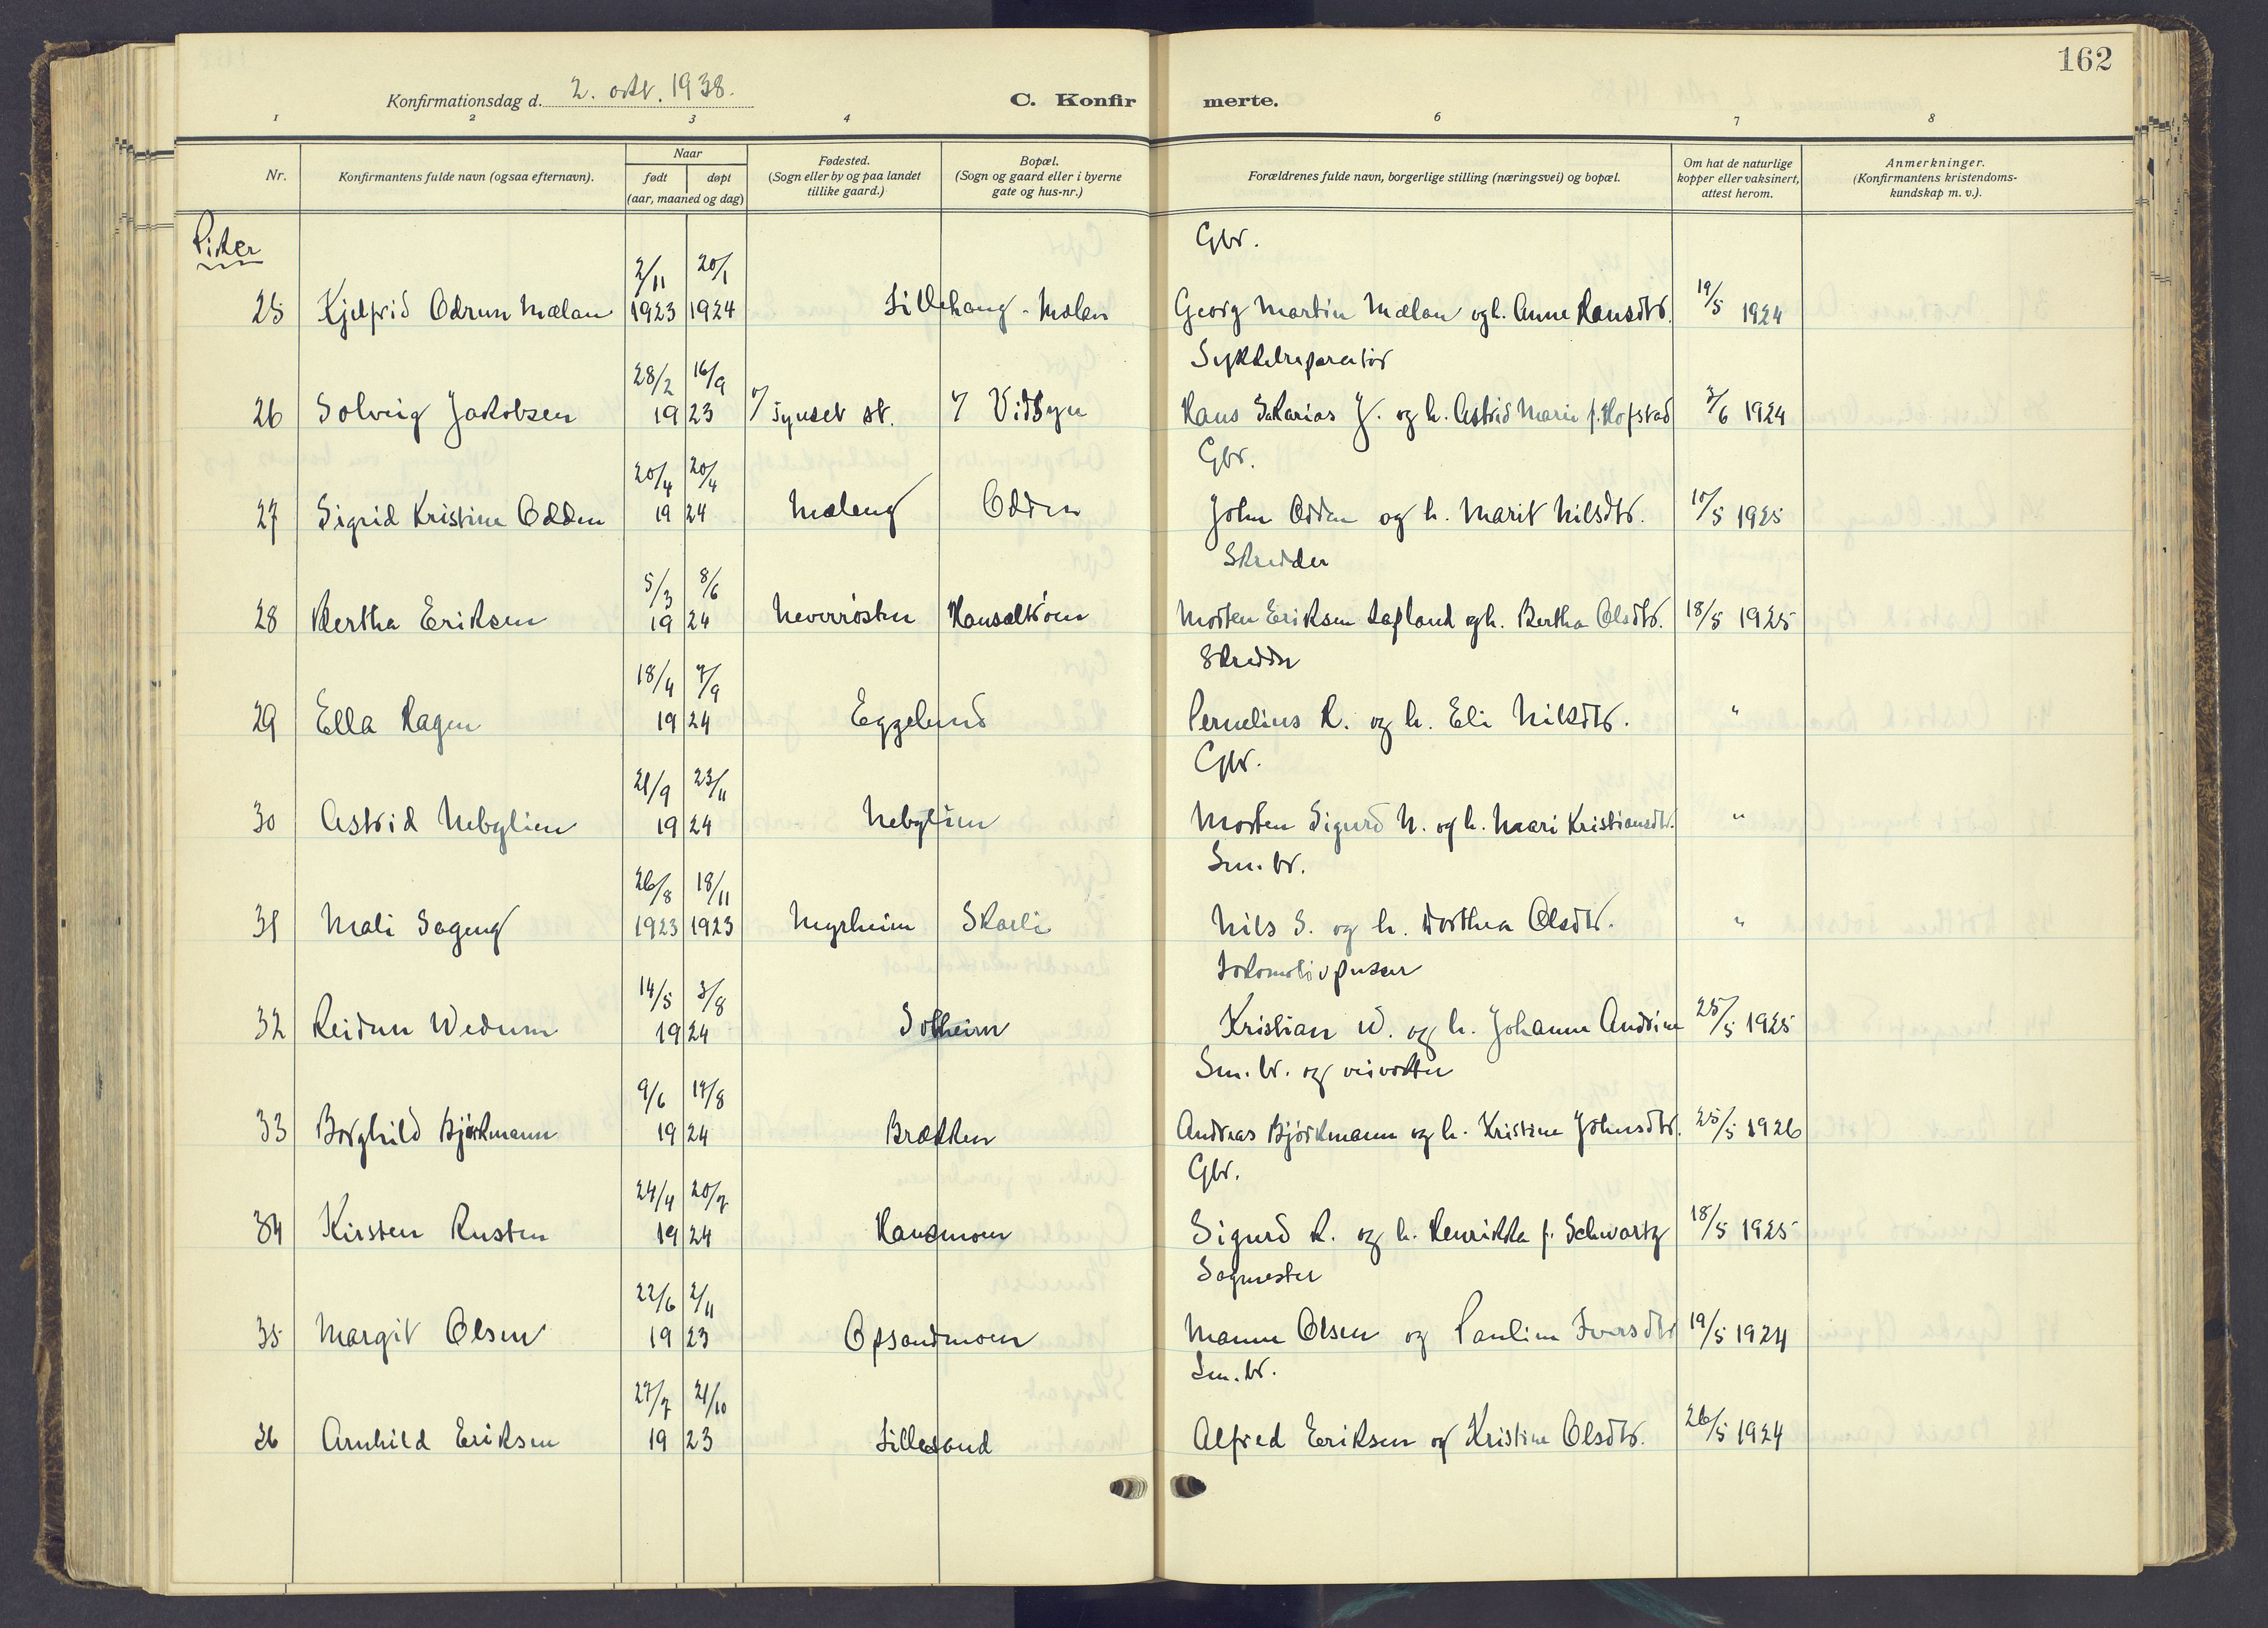 162
Konfirmationsdag d. 2. okt. 1938.
C. Konfir merte.
1 2 3 4 6 7 8
Nr.
Konfirmantens fulde navn (ogsaa efternavn).
Naar
født døpt
(aar, maaned og dag)
Fødested.
(Sogn eller by og paa landet
tillike gaard.)
Bopæl.
(Sogn og gaard eller i byerne
gate og hus-nr.)
Forældrenes fulde navn, borgerlige stilling (næringsvei) og bopæl.
Om hat de naturlige
kopper eller vaksinert,
attest herom.
Anmerkninger.
(Konfirmantens kristendoms-
kundskap m. v.).
Piker
2/11 20/1 Gbr.
25 Kjelfrid Odrun Mælan 1923 1924 Lillehaug - Mælan Georg Martin Mælan og h. Anne Hansdtr. 19/5 1924
28/2 16/9 Sykkelreparatør
26 Solveig Jakobsen 19 23 Tynset st. Vidsyn Hans Sakarias J. og h. Astrid Marie f. Hofstad 3/6 1924
20/4 20/4 Gbr.
27 Sigrid Kristine Odden 19 24 Mæleng Odden John Odden og h. Marit Nilsdtr. 10/5 1925
5/3 8/6 Skredder
28 Bertha Eriksen 19 24 Neverrøsten Hansaltrøen Morten Eriksen Lafland og h. Bertha Olsdtr. 18/5 1925
18/4 7/9 Skredder
29 Ella Ragen 19 24 Eggelund Pernelius R. og h. Eli Nilsdtr. "
21/9 23/11 Gbr.
30 Astrid Nebylien 19 24 Nebylien Morten Sigurd N. og h. Maari Kristiansdtr. "
26/8 18/11 Sm. br.
31 Mali Sageng 1923 1923 Myrheim Skarli Nils S. og h. Dorthea Olsdtr. "
14/5 3/8 Lokomotivpusser
32 Reidun Wedum 19 24 Solheim Kristian W. og h. Johanne Andrine 25/5 1925
9/6 17/8 Sm. br. og veivokter
33 Borghild Bjørkmann 19 24 Brækken Andreas Bjørkmann og h. Kristine Johnsdtr. 25/5 1926
24/4 20/7 Gbr.
34 Kirsten Rusten 19 24 Hansmoen Sigurd R. og h. Henrikka f. Schwartz 18/5 1925
22/6 2/11 Sagmester
35 Margit Olsen 19 23 Opsandmoen Manne Olsen og Pauline Iversdtr 19/5 1924
27/7 21/10 Sm. br.
36 Arnhild Eriksen 19 23 Lillesand Alfred Eriksen og Kristine Olsdtr. 26/5 1924